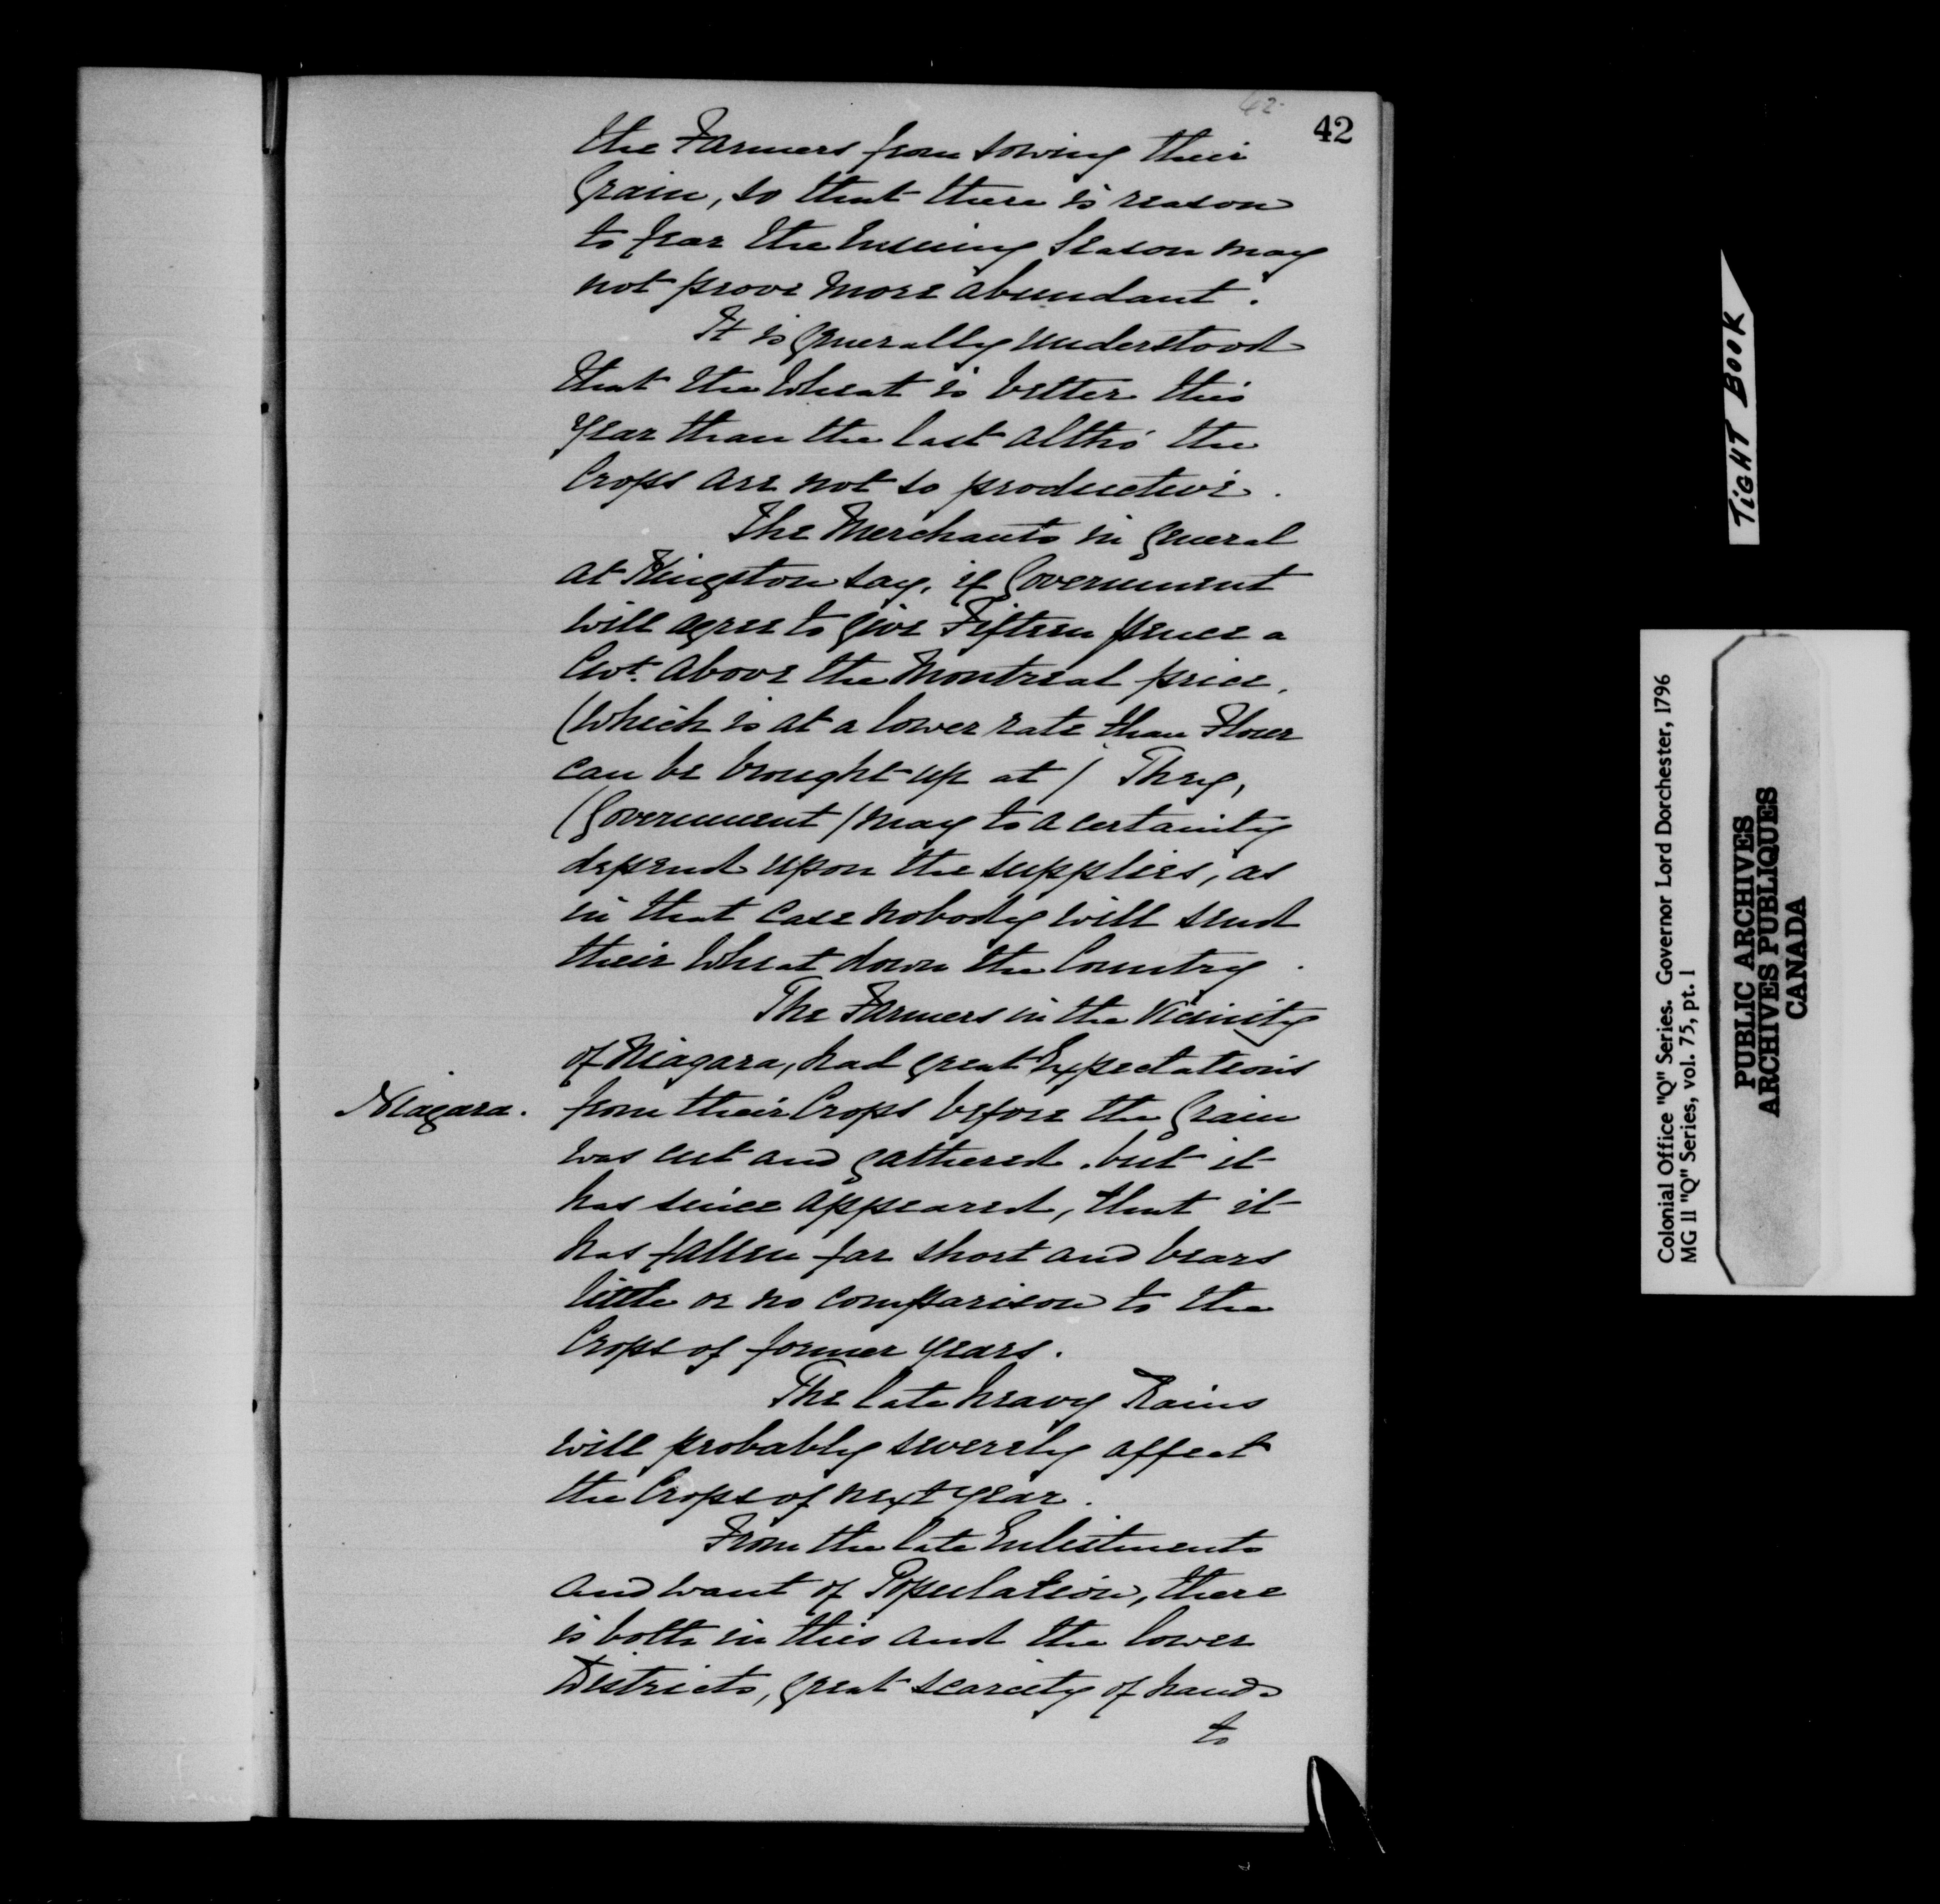 42
42
the Farmers from sowing their
Grain, so that there is reason
to fear the Ensuing Season may
not prove more abundant.
It is generally understood
that the Wheat is better this
Year than the last altho' the
Crops are not so productive.
The Merchants in General
at Kingston say, if Government
will agree to give Fifteen pence a
Cwt. above the Montreal price,
(which is at a lower rate than Flour
can be brought up at) They,
(Government) may to a certainty
depend upon the supplies, as
in that case nobody will send
their Wheat down the Country.
The Farmers in the Vicinity
of Niagara, had great Expectations
Niagara.
from their Crops before the Grain
was cut and gathered, but it
has since appeared, that it
has fallen far short and bears
little or no comparison to the
Crops of former years.
The late heavy Rains
will probably severely affect
the Crops of next year.
From the late Enlistments
and want of Population, there
is both in this and the lower
Districts, great scarcity of hands
to
TIGHT BOOK
Colonial Office "Q" Series. Governor Lord Dorchester, 1796
MG 11 "Q" Series, vol. 75, pt. 1
PUBLIC ARCHIVES
ARCHIVES PUBLIQUES
CANADA